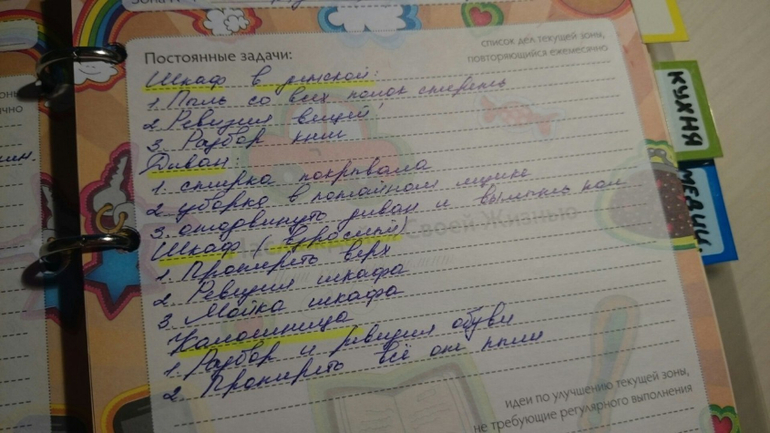 Зона №
Постоянные задачи:
список дел текущей зоны,
повторяющийся ежемесячно
Шкаф в детской:
1. Пыль со всех полок стереть
2. Ревизия вещей!
3. Разбор книг
Диван:
1. стирка покрывала
2. уборка в потайном ящике
3. отодвинуть диван и вымыть пол
Своей Жизнью
Шкаф (взрослый)
1. Протереть верх
2. Ревизия шкафа
3. Мойка шкафа
Калошница
1. Разбор и ревизия обуви
2. Протереть всё от пыли
идеи по улучшению текущей зоны,
не требующие регулярного выполнения
КУХНЯ